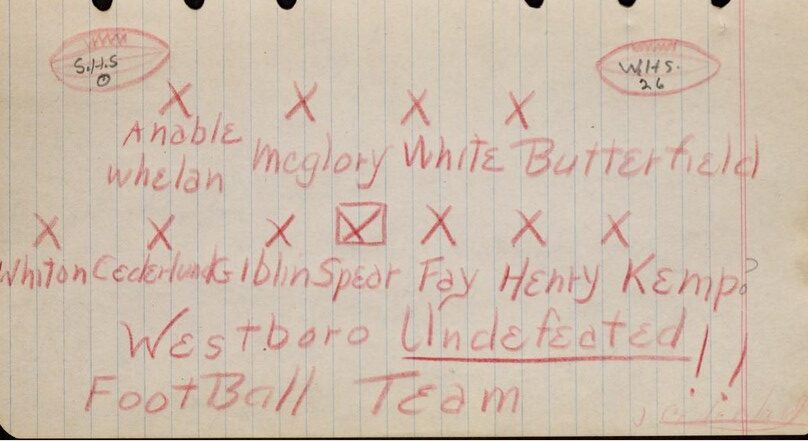 S.H.S
0
W.H.S.
26
X X X X
Anable
whelan mcglory White Butterfield
X X X X X X X
Whiton Cederlund Giblin Spear Fay Henry Kemp?
Westboro Undefeated!!
FootBall Team